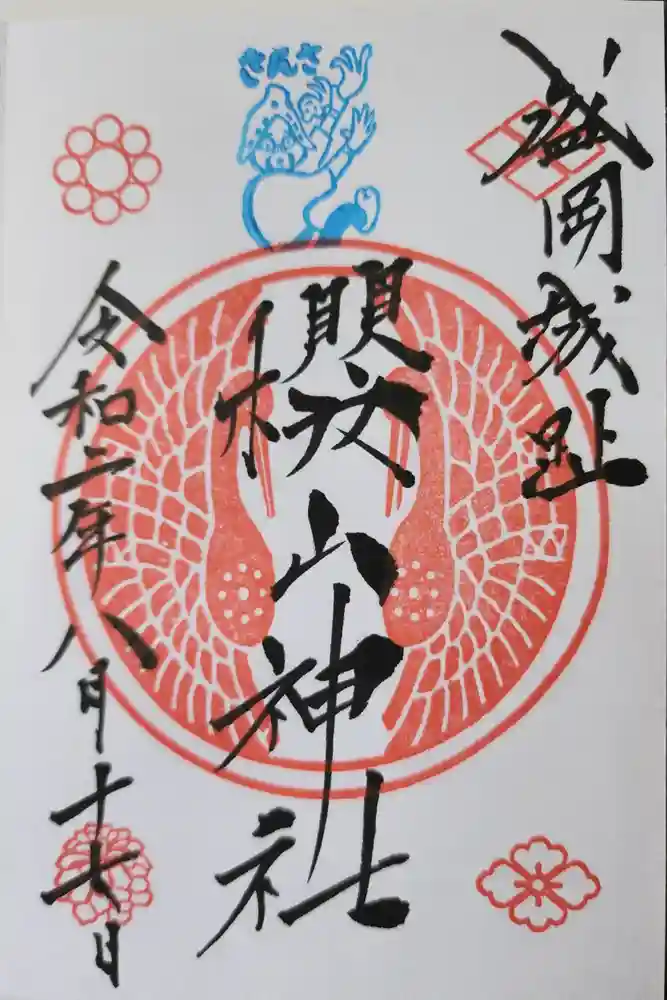 盛岡城趾
さんさ
櫻山神社
令和二年八月十七日